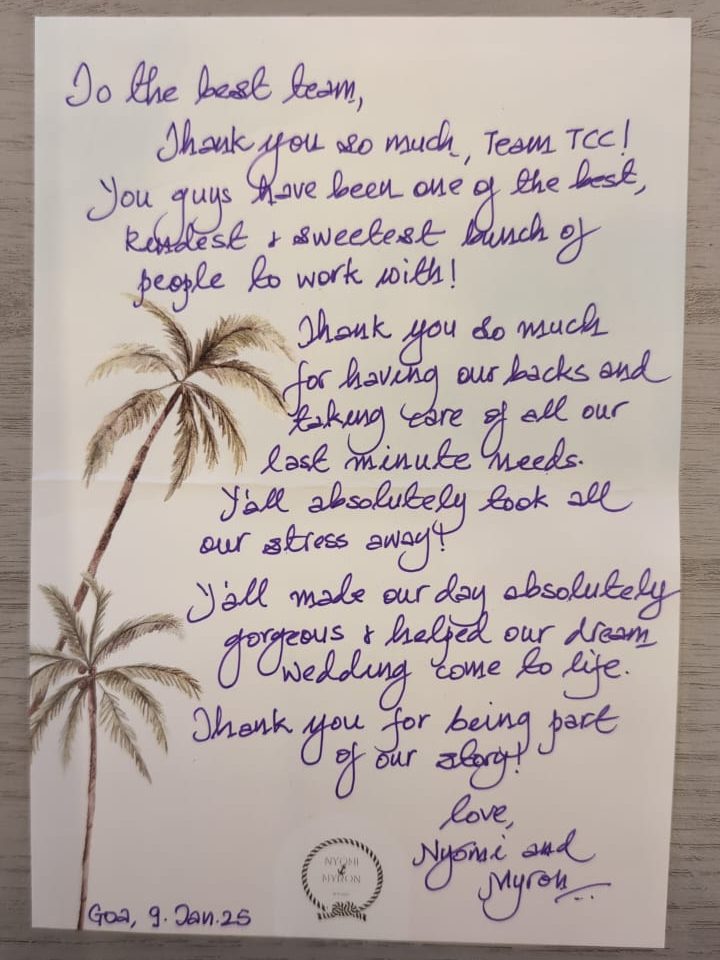 To the best team,
Thank you so much, Team TCC!
You guys have been one of the best,
kindest & sweetest bunch of
people to work with!
Thank you so much
for having our backs and
taking care of all our
last minute needs.
Y'all absolutely took all
our stress away!
Y'all made our day absolutely
gorgeous & helped our dream
wedding come to life.
Thank you for being part
of our story!
love,
Nyomi and
Myron
NYOMI
&
MYRON
Goa, 9. Jan.25